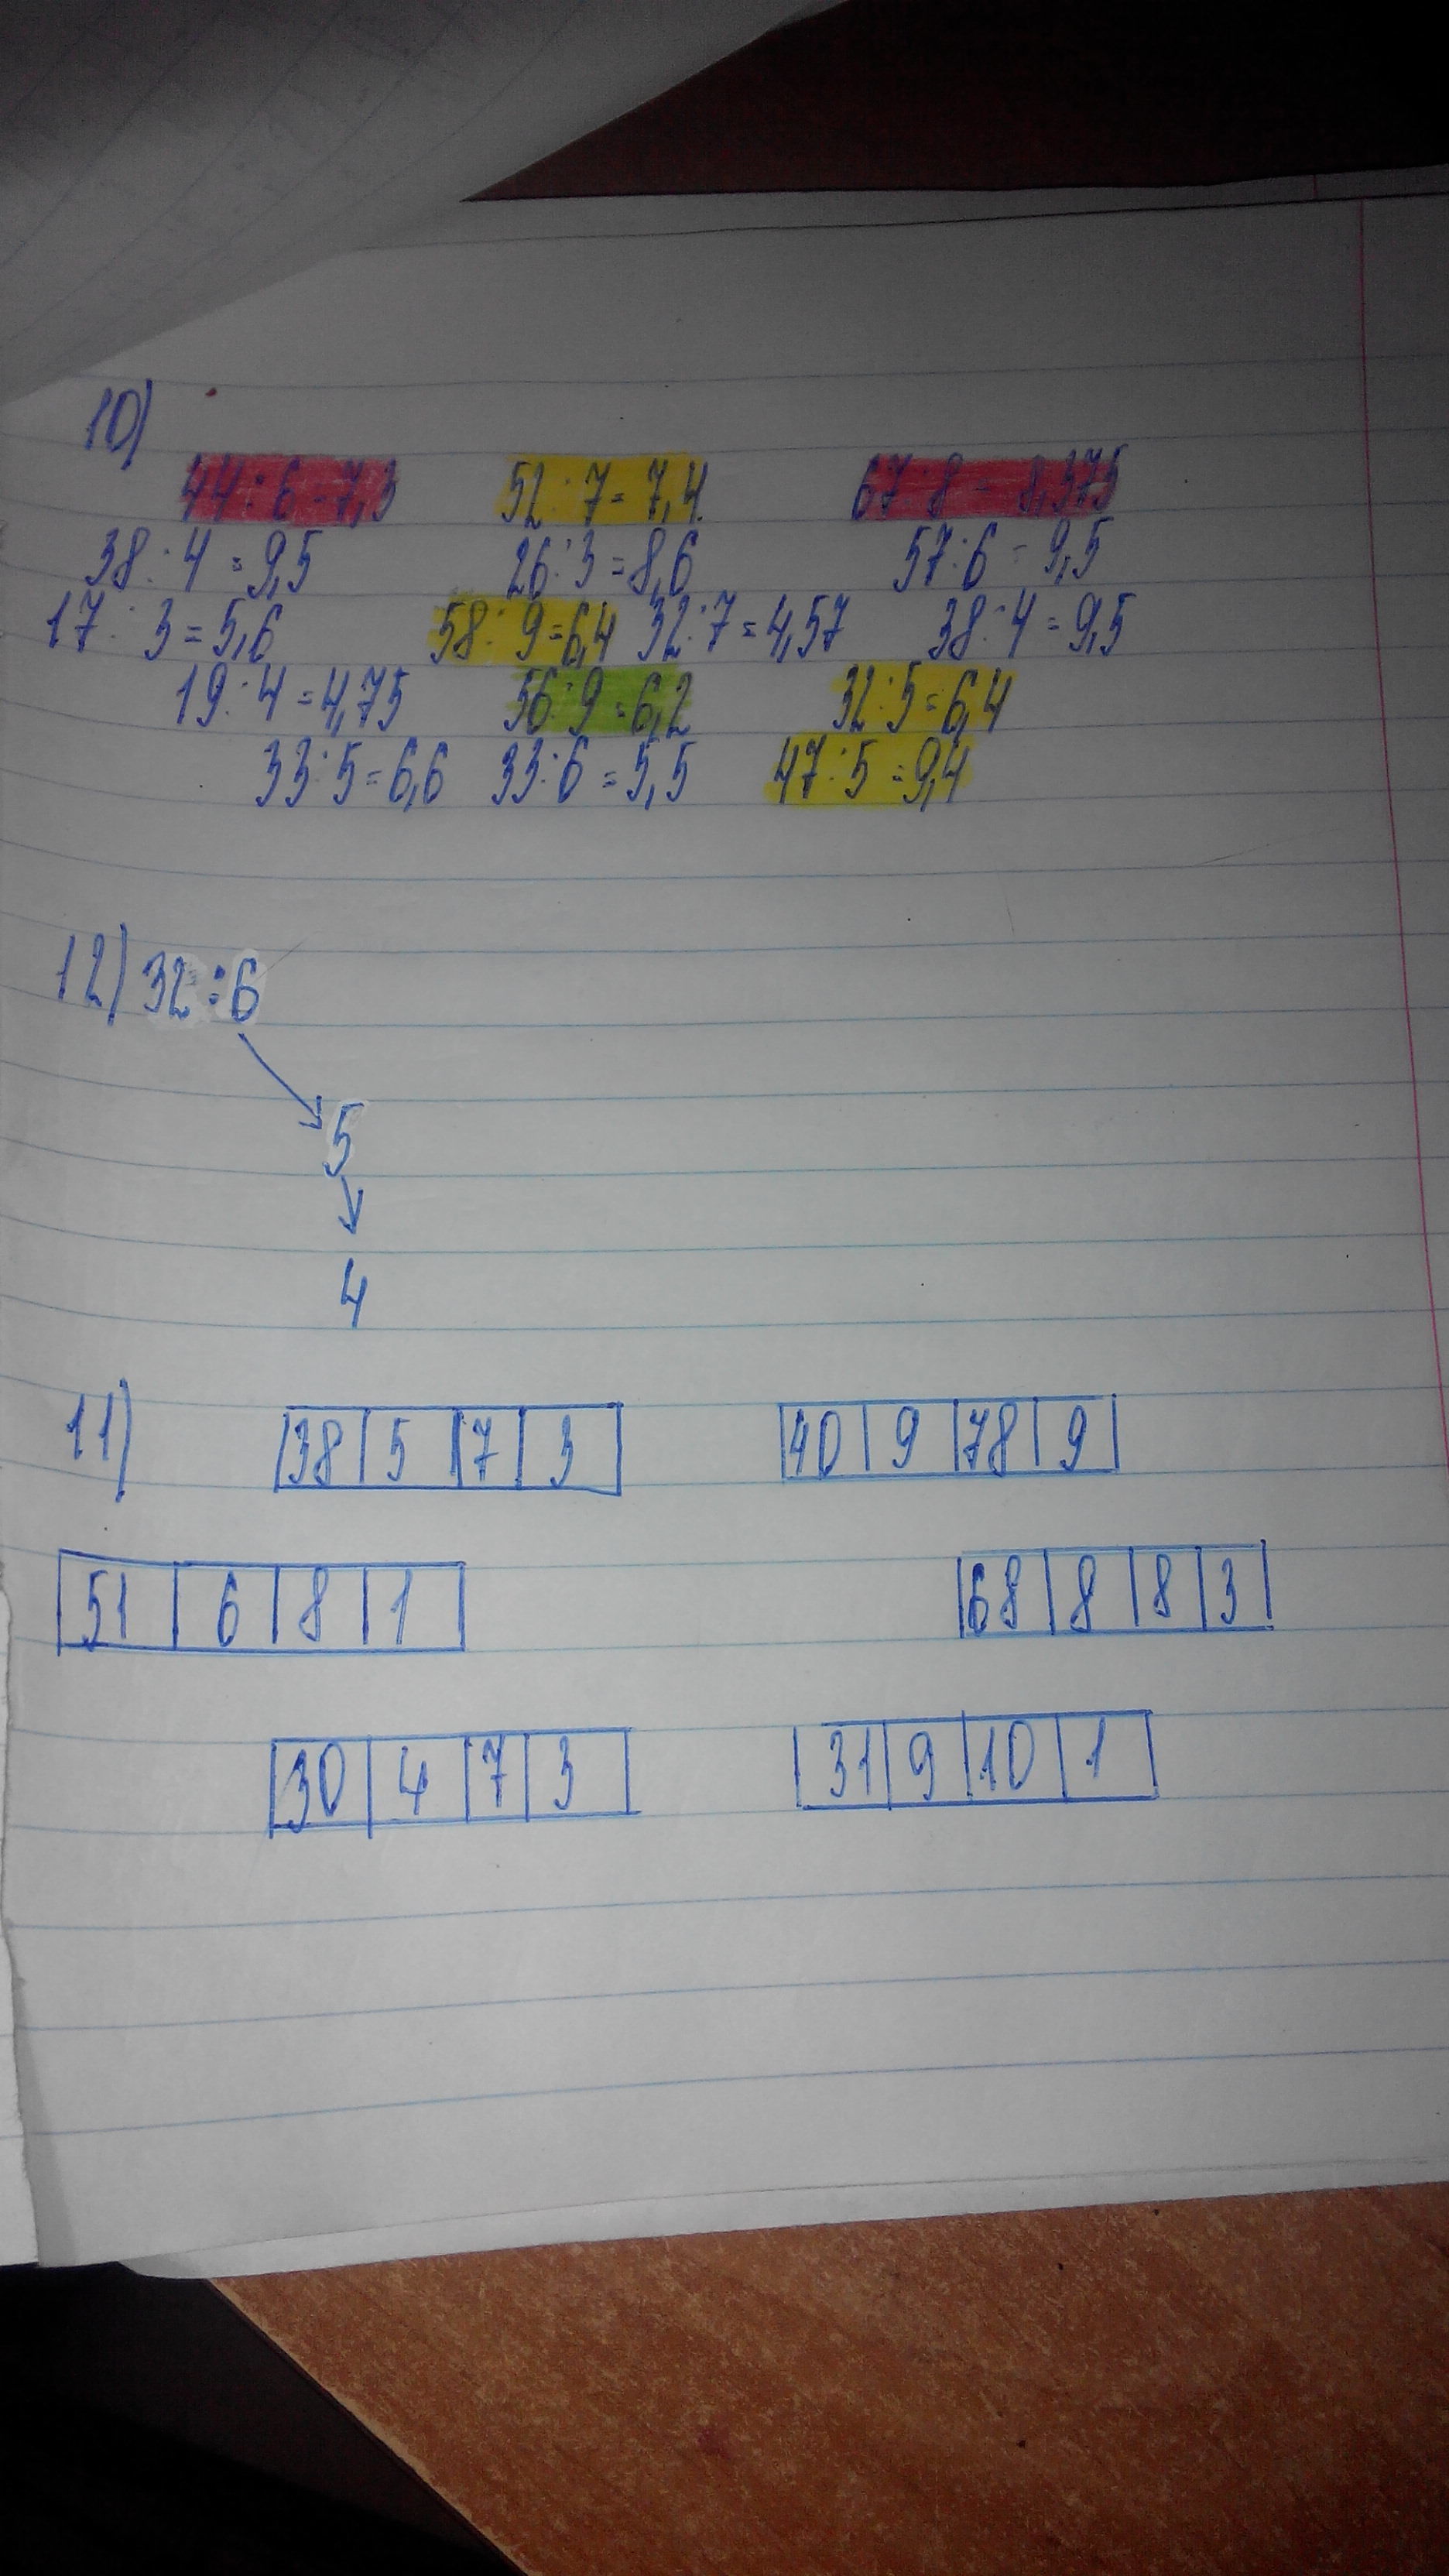 10)
44:6=7,3 52:7=7,4 67:8=8,375
38:4=9,5 26:3=8,6 57:6=9,5
17:3=5,6 58:9=6,4 32:7=4,57 38:4=9,5
19:4=4,75 56:9=6,2 32:5=6,4
33:5=6,6 33:6=5,5 47:5=9,4
12) 32:6
5
4
11) 38 5 7 3 40 9 78 9
51 6 8 1 68 8 8 3
30 4 7 3 31 9 10 1